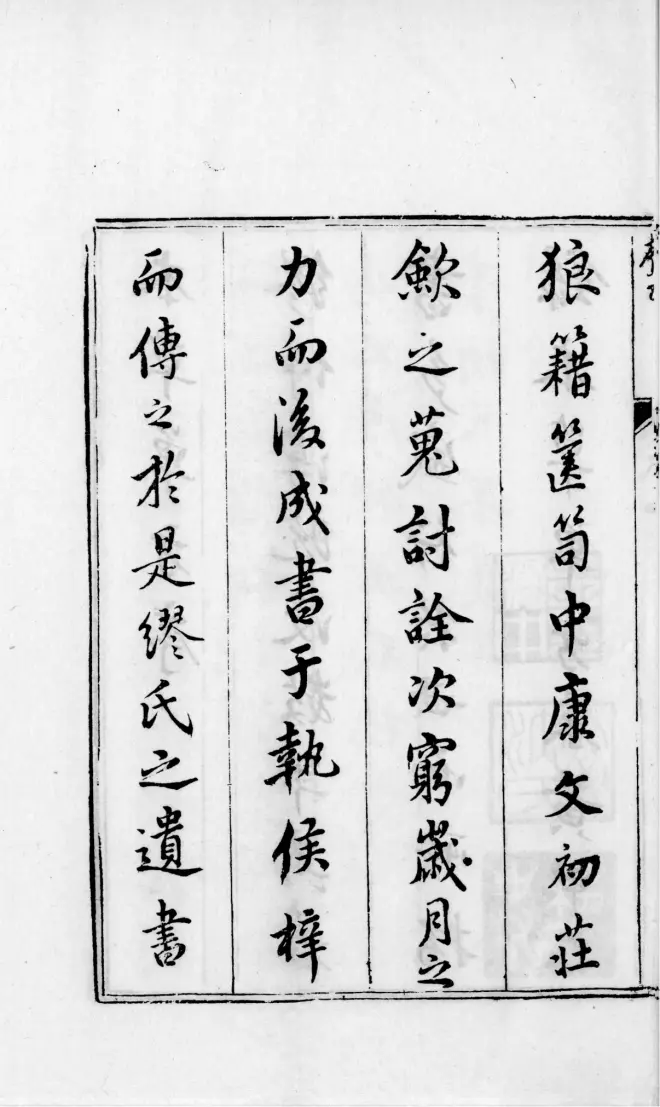 狼籍篋笥中康文初莊
歛之蒐討詮次窮嵗月之
力而後成書于執侯梓
而傳之於是繆氏之遺書